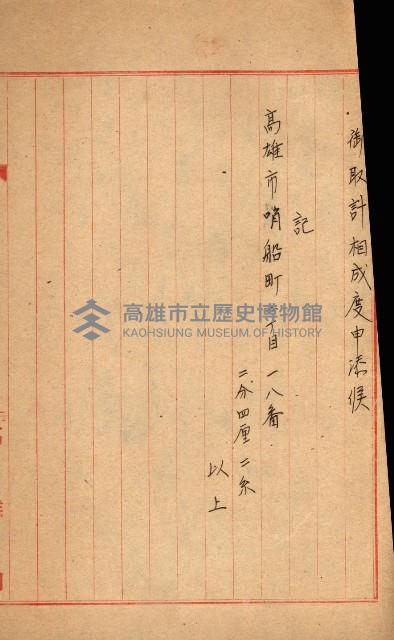 御取計相成度申添候
記
高雄市哨船町 丁目一八番
二分四厘二糸
以上
高雄市立歷史博物館
KAOHSIUNG MUSEUM OF HISTORY